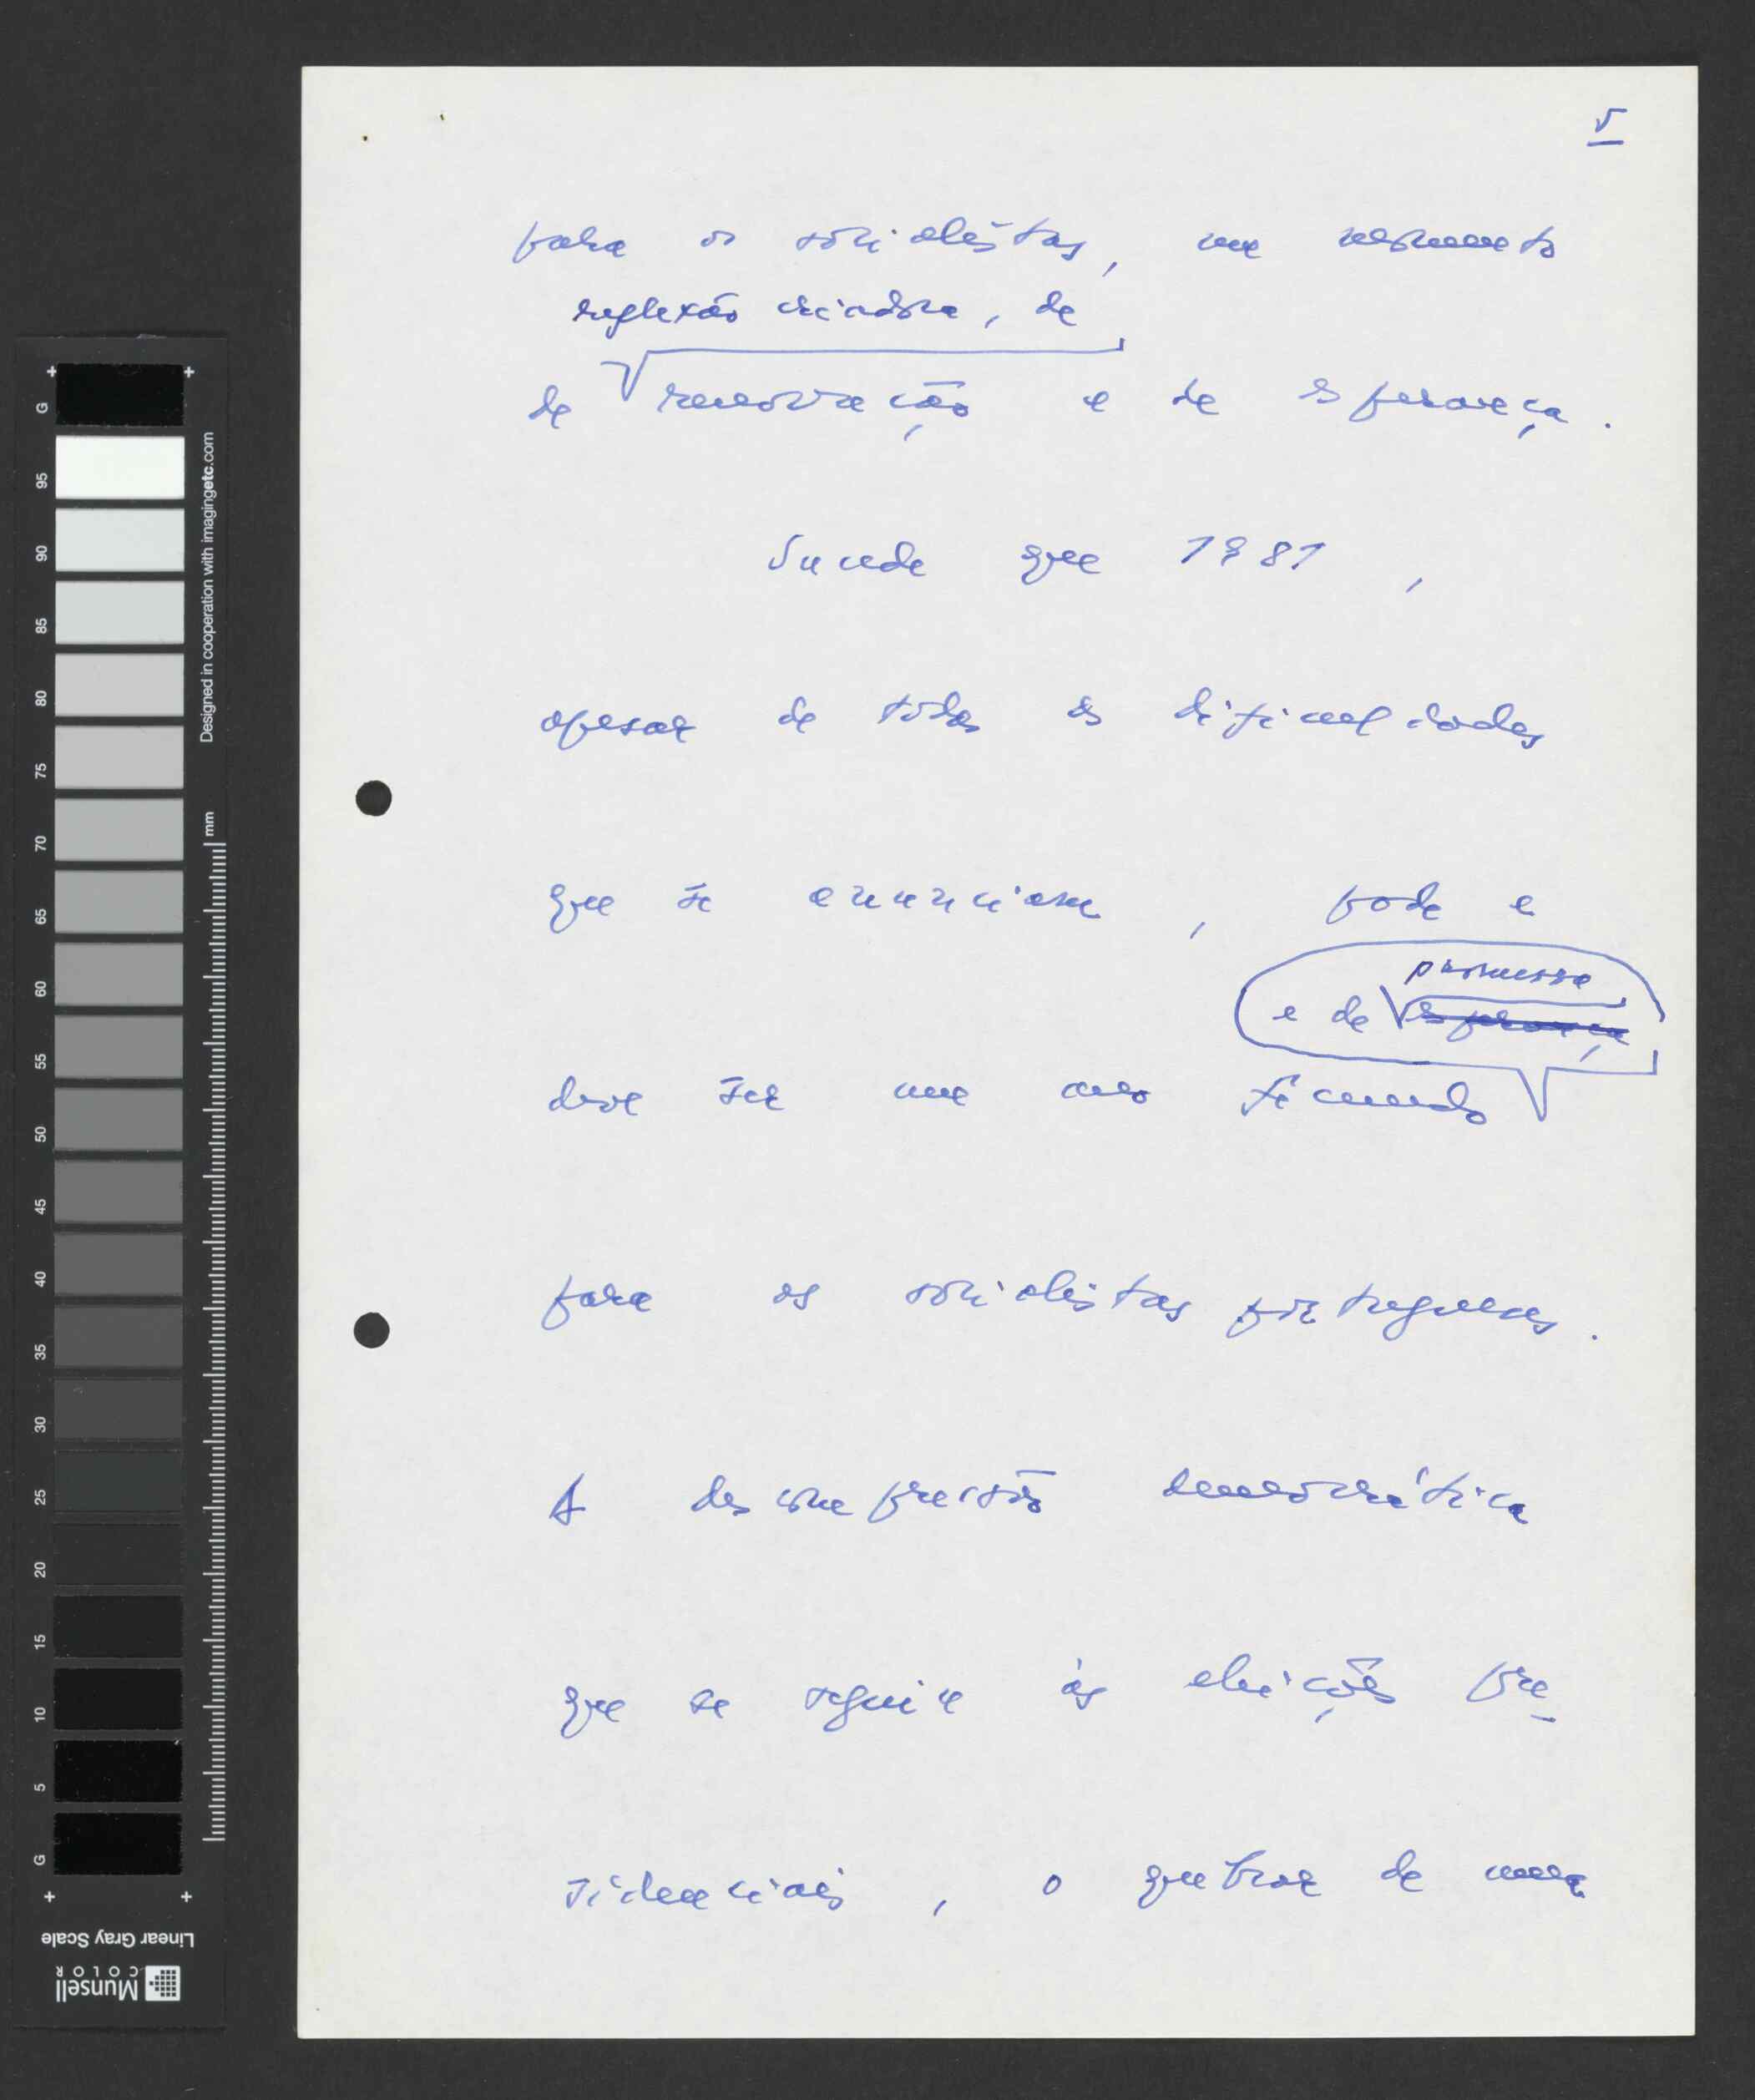 5
para os socialistas, um momento
reflexão criadora, de
de renovação e de esperança.
Sucede que 1981,
apesar de todas as dificuldades
que se anunciam, pode e
promessa
e de esperança
deve ser um ano fecundo
para os socialistas portugueses.
A descompressão democrática
que se seguiu às eleições pre-
sidenciais, o quebrar de uma
G
95
90
85
80
75
70
65
60
55
50
45
40
35
30
25
20
15
10
5
G
Designed in cooperation with imagingetc.com
mm
Linear Gray Scale
Munsell
COLOR